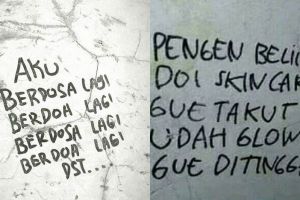 AKU
BERDOSA LAGI
BERDOA LAGI
BERDOSA LAGI
BERDOA LAGI
DST...
PENGEN BELII
DOI SKINCAR
GUE TAKUT
UDAH GLOW
GUE DITINGG